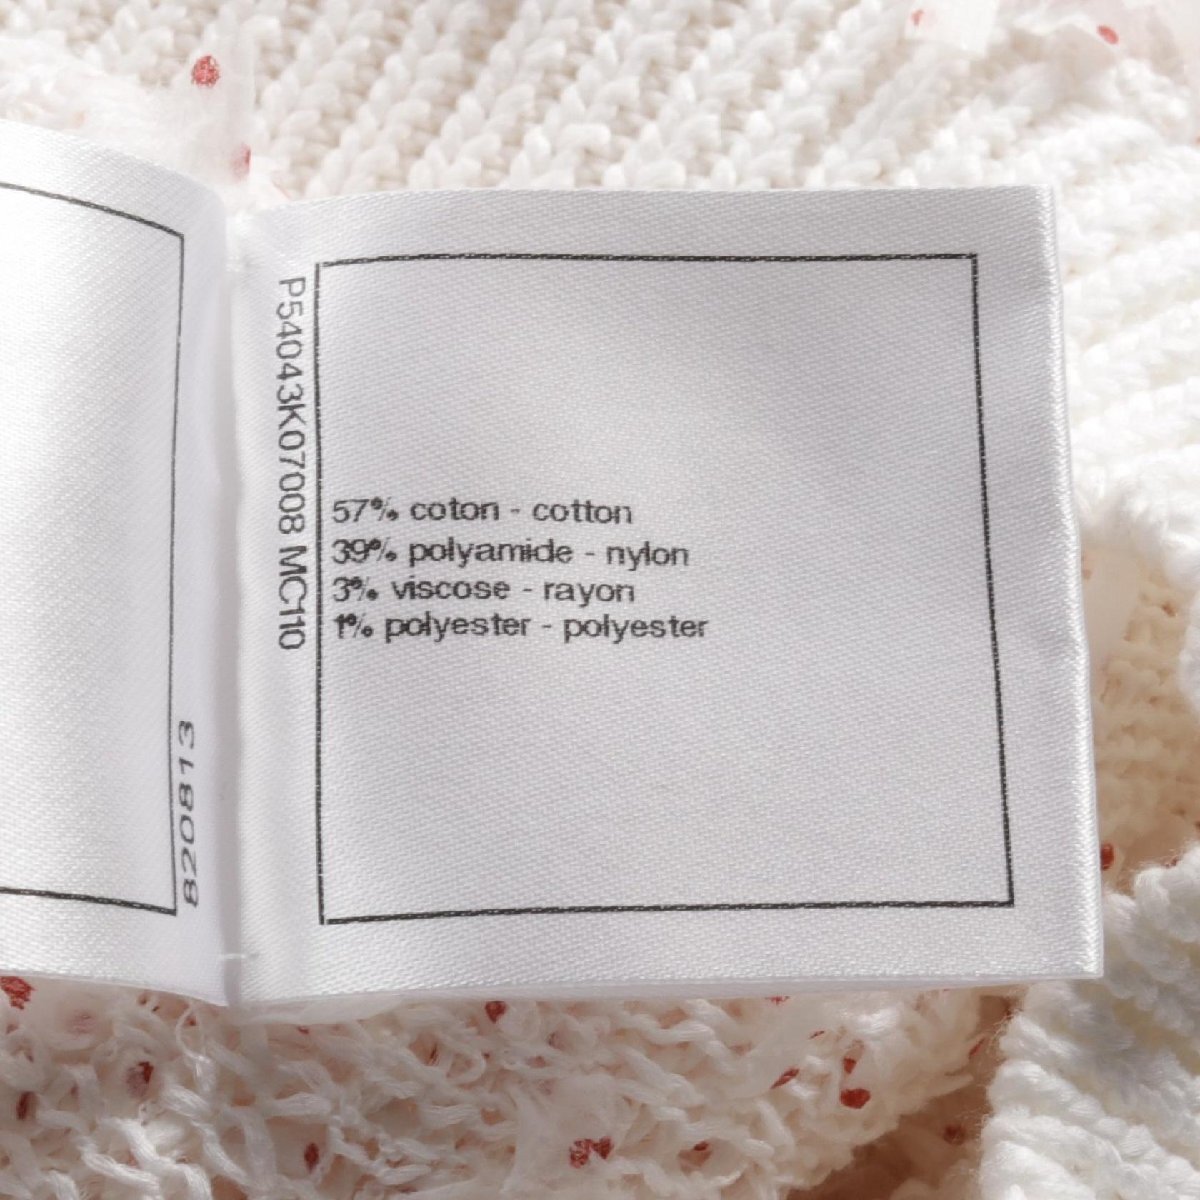 P54043K07008 MC110
57% coton - cotton
39% polyamide - nylon
3% viscose - rayon
1% polyester - polyester
820813